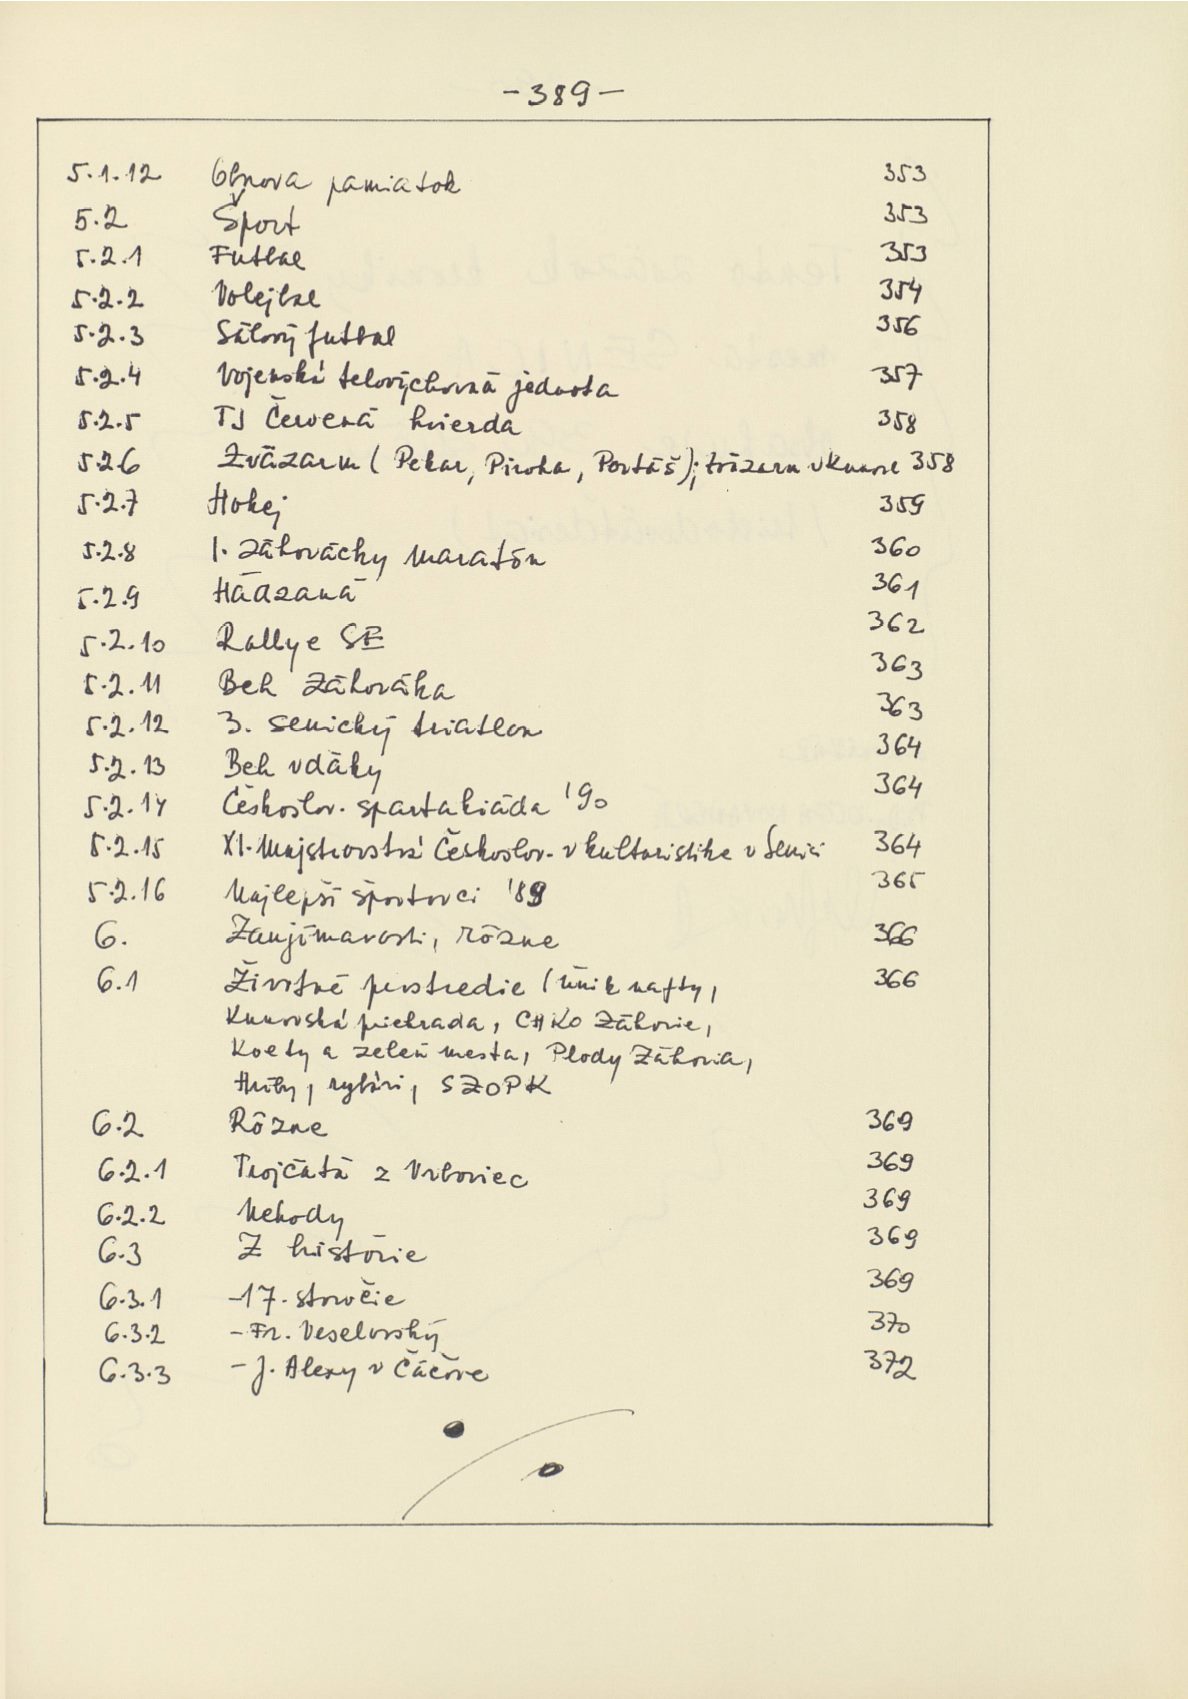 -389-
5.1.12 Obnova pamiatok 353
5.2 Šport 353
5.2.1 Futbal 353
5.2.2 Volejbal 354
5.2.3 Sálový futbal 356
5.2.4 Vojenská telovýchovná jednota 357
5.2.5 TJ Červená hviezda 358
5.2.6 Zväzarm (Pekar, Piroha, Portáš); Zväzarm v Kunove 358
5.2.7 Hokej 359
5.2.8 1. záhorácky maratón 360
5.2.9 Hádzaná 361
5.2.10 Rallye SE 362
5.2.11 Beh Záhoráka 363
5.2.12 3. senický triatlon 363
5.2.13 Beh vďaky 364
5.2.14 Českoslov. spartakiáda '90 364
5.2.15 XI. Majstrovstvá Českoslov. v kulturistike v Senici 364
5.2.16 Najlepší športovci '89 365
6. Zaujímavosti, rôzne 366
6.1 Životné prostredie (únik nafty, 366
Kunovská priehrada, CHKO Záhorie,
Kvety a zeleň mesta, Plody Záhoria,
Huby, rybári, SZOPK
6.2 Rôzne 369
6.2.1 Trojčatá z Vrboviec 369
6.2.2 Nehody 369
6.3 Z histórie 369
6.3.1 -17. storočie 369
6.3.2 - Fr. Veselovský 370
6.3.3 - J. Alexy v Čáčove 372